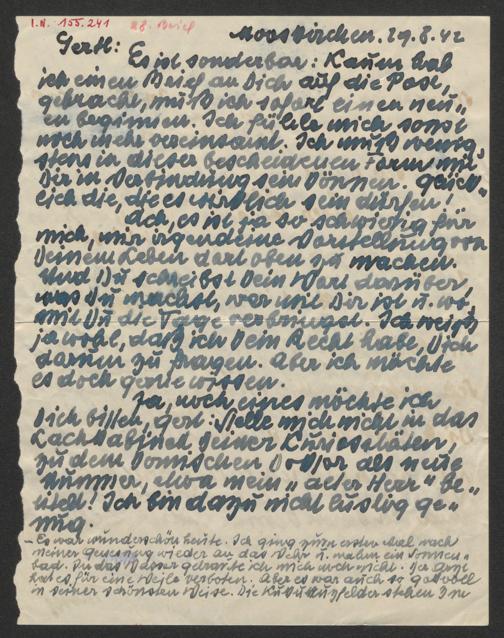 I.N. 155.241
28. Brief
Mooskirchen. 29.8.42
Gertl:
Es ist sonderbar: Kaum hab
ich einen Brief an Dich auf die Post,
gebracht, muß ich sofort einen neu„
en beginnen. Ich fühle mich sonst
noch mehr vereinsamt. Ich muß wenig„
stens in dieser bescheidenen Form mit
Dir in Verbindung sein können. Glück„
lich die, die es wirklich sein dürfen!
Ach, es ist ja so schwierig für
mich, mir irgendeine Vorstellung von
Deinem Leben dort oben zu machen.
Und Du schreibst kein Wort darüber,
was Du machst, wer mit Dir ist u. wo„
mit Du die Tage verbringst. Ich weiß
ja wohl, daß ich kein Recht habe, Dich
darum zu fragen. Aber ich möchte
es doch gerne wissen.
Ja, noch eines möchte ich
Dich bitten, Gertl: Stelle mich nicht in das
Lachkabinett Deiner Kuriositäten,
zu dem komischen Doktor als neue
Nummer, etwa mein „alter Herr" be„
titelt! Ich bin dazu nicht lustig ge„
nug.
– Es war wunderschön heute. Ich ging zum ersten Mal nach
meiner Genesung wieder an das Wehr u. nahm ein Sonnen„
bad. In das Wasser getraute ich mich noch nicht. Der Arzt
hat es für eine Weile verboten. Aber es war auch so gottvoll
in seiner schönsten Weise. Die Kukuruzfelder stehen im